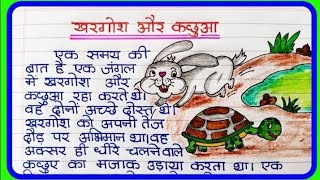 खरगोश और कछुआ
एक समय की
बात है एक जंगल
में खरगोश और
कछुआ रहा करते थे।
वह दोनों अच्छे दोस्त थे।
खरगोश को अपनी तेज
दौड़ पर अभिमान था। वह
अक्सर ही धीरे चलने वाले
कछुए का मजाक उड़ाया करता था। एक